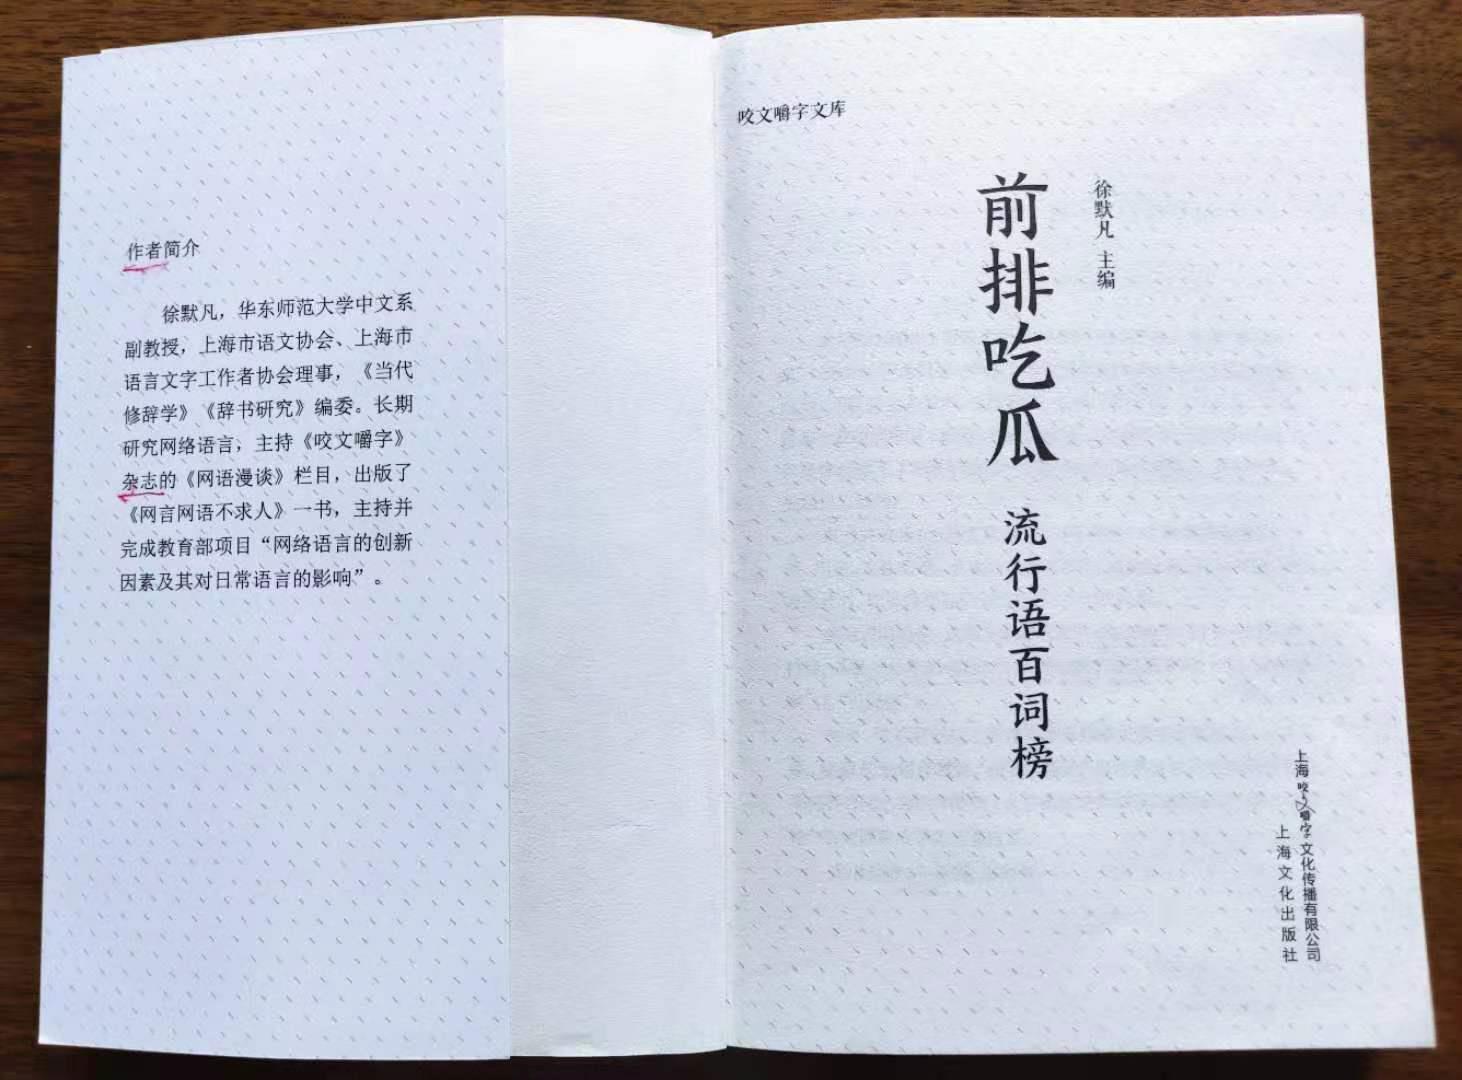 作者简介
徐默凡，华东师范大学中文系
副教授，上海市语文协会、上海市
语言文字工作者协会理事，《当代
修辞学》《辞书研究》编委。长期
研究网络语言，主持《咬文嚼字》
杂志的《网语漫谈》栏目，出版了
《网言网语不求人》一书，主持并
完成教育部项目“网络语言的创新
因素及其对日常语言的影响”。
咬文嚼字文库
徐默凡 主编
前排吃瓜
流行语百词榜
上海咬文嚼字文化传播有限公司
上海文化出版社